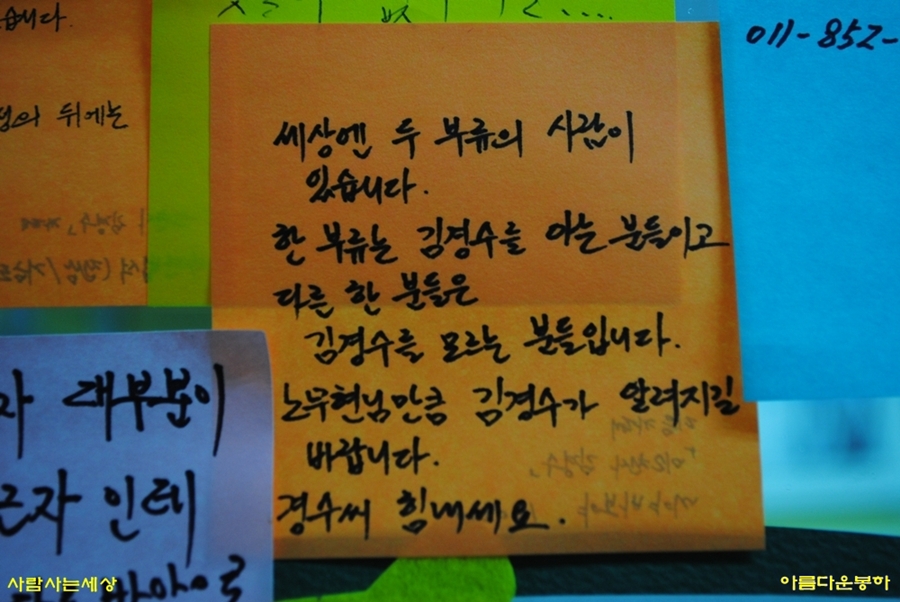 습니다.
뒤에는
011-852-
세상엔 두 부류의 사람이
있습니다.
한 부류는 김경수를 아는 분들이고
다른 한 분들은
김경수를 모르는 분들입니다.
노무현님만큼 김경수가 알려지길
바랍니다.
경수씨 힘내세요.
자 대부분이
근자 인데
사람사는세상
아름다운봉하